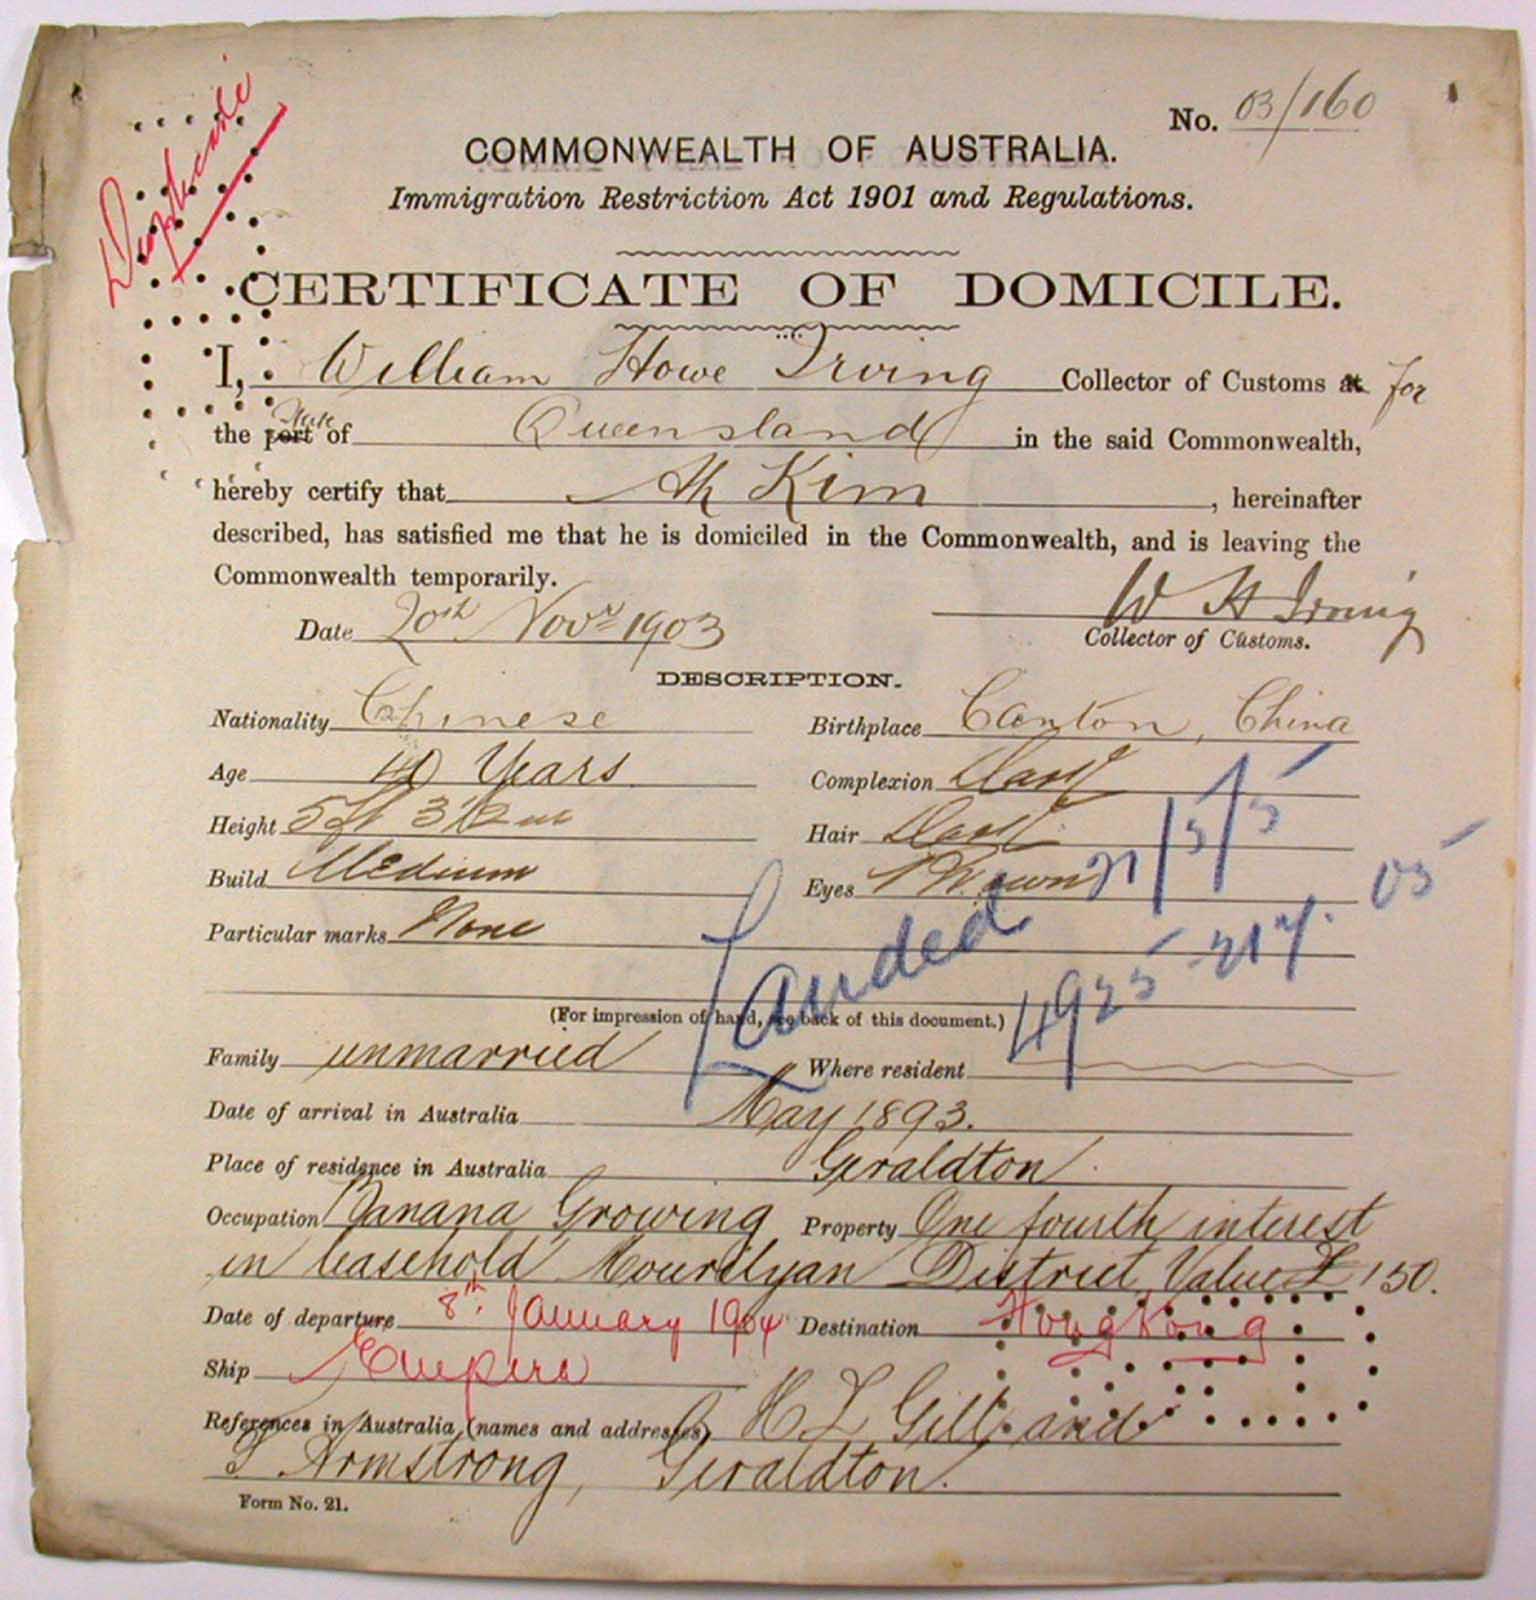 Duplicate
No. 03/160
COMMONWEALTH OF AUSTRALIA.
Immigration Restriction Act 1901 and Regulations.
CERTIFICATE OF DOMICILE.
I, William Howe Irving Collector of Customs at for
the port State of Queensland in the said Commonwealth,
hereby certify that Ah Kim, hereinafter
described, has satisfied me that he is domiciled in the Commonwealth, and is leaving the
Commonwealth temporarily.
Date 20th Novr 1903 W H Irving
Collector of Customs.
DESCRIPTION.
Nationality Chinese Birthplace Canton, China
Age 40 Years Complexion Dark
Height 5ft 3 1/2 in Hair Dark
Build Medium Eyes Brown
Particular marks None
Landed
(For impression of hand, see back of this document.)
Family unmarried Where resident
Date of arrival in Australia May 1893.
Place of residence in Australia Geraldton.
Occupation Banana Growing Property One fourth interest
in leasehold Mourilyan District Value £150.
Date of departure 8th January 1904 Destination Hong Kong
Ship Empire
References in Australia (names and addresses) H L Gill and
T Armstrong, Geraldton.
Form No. 21.